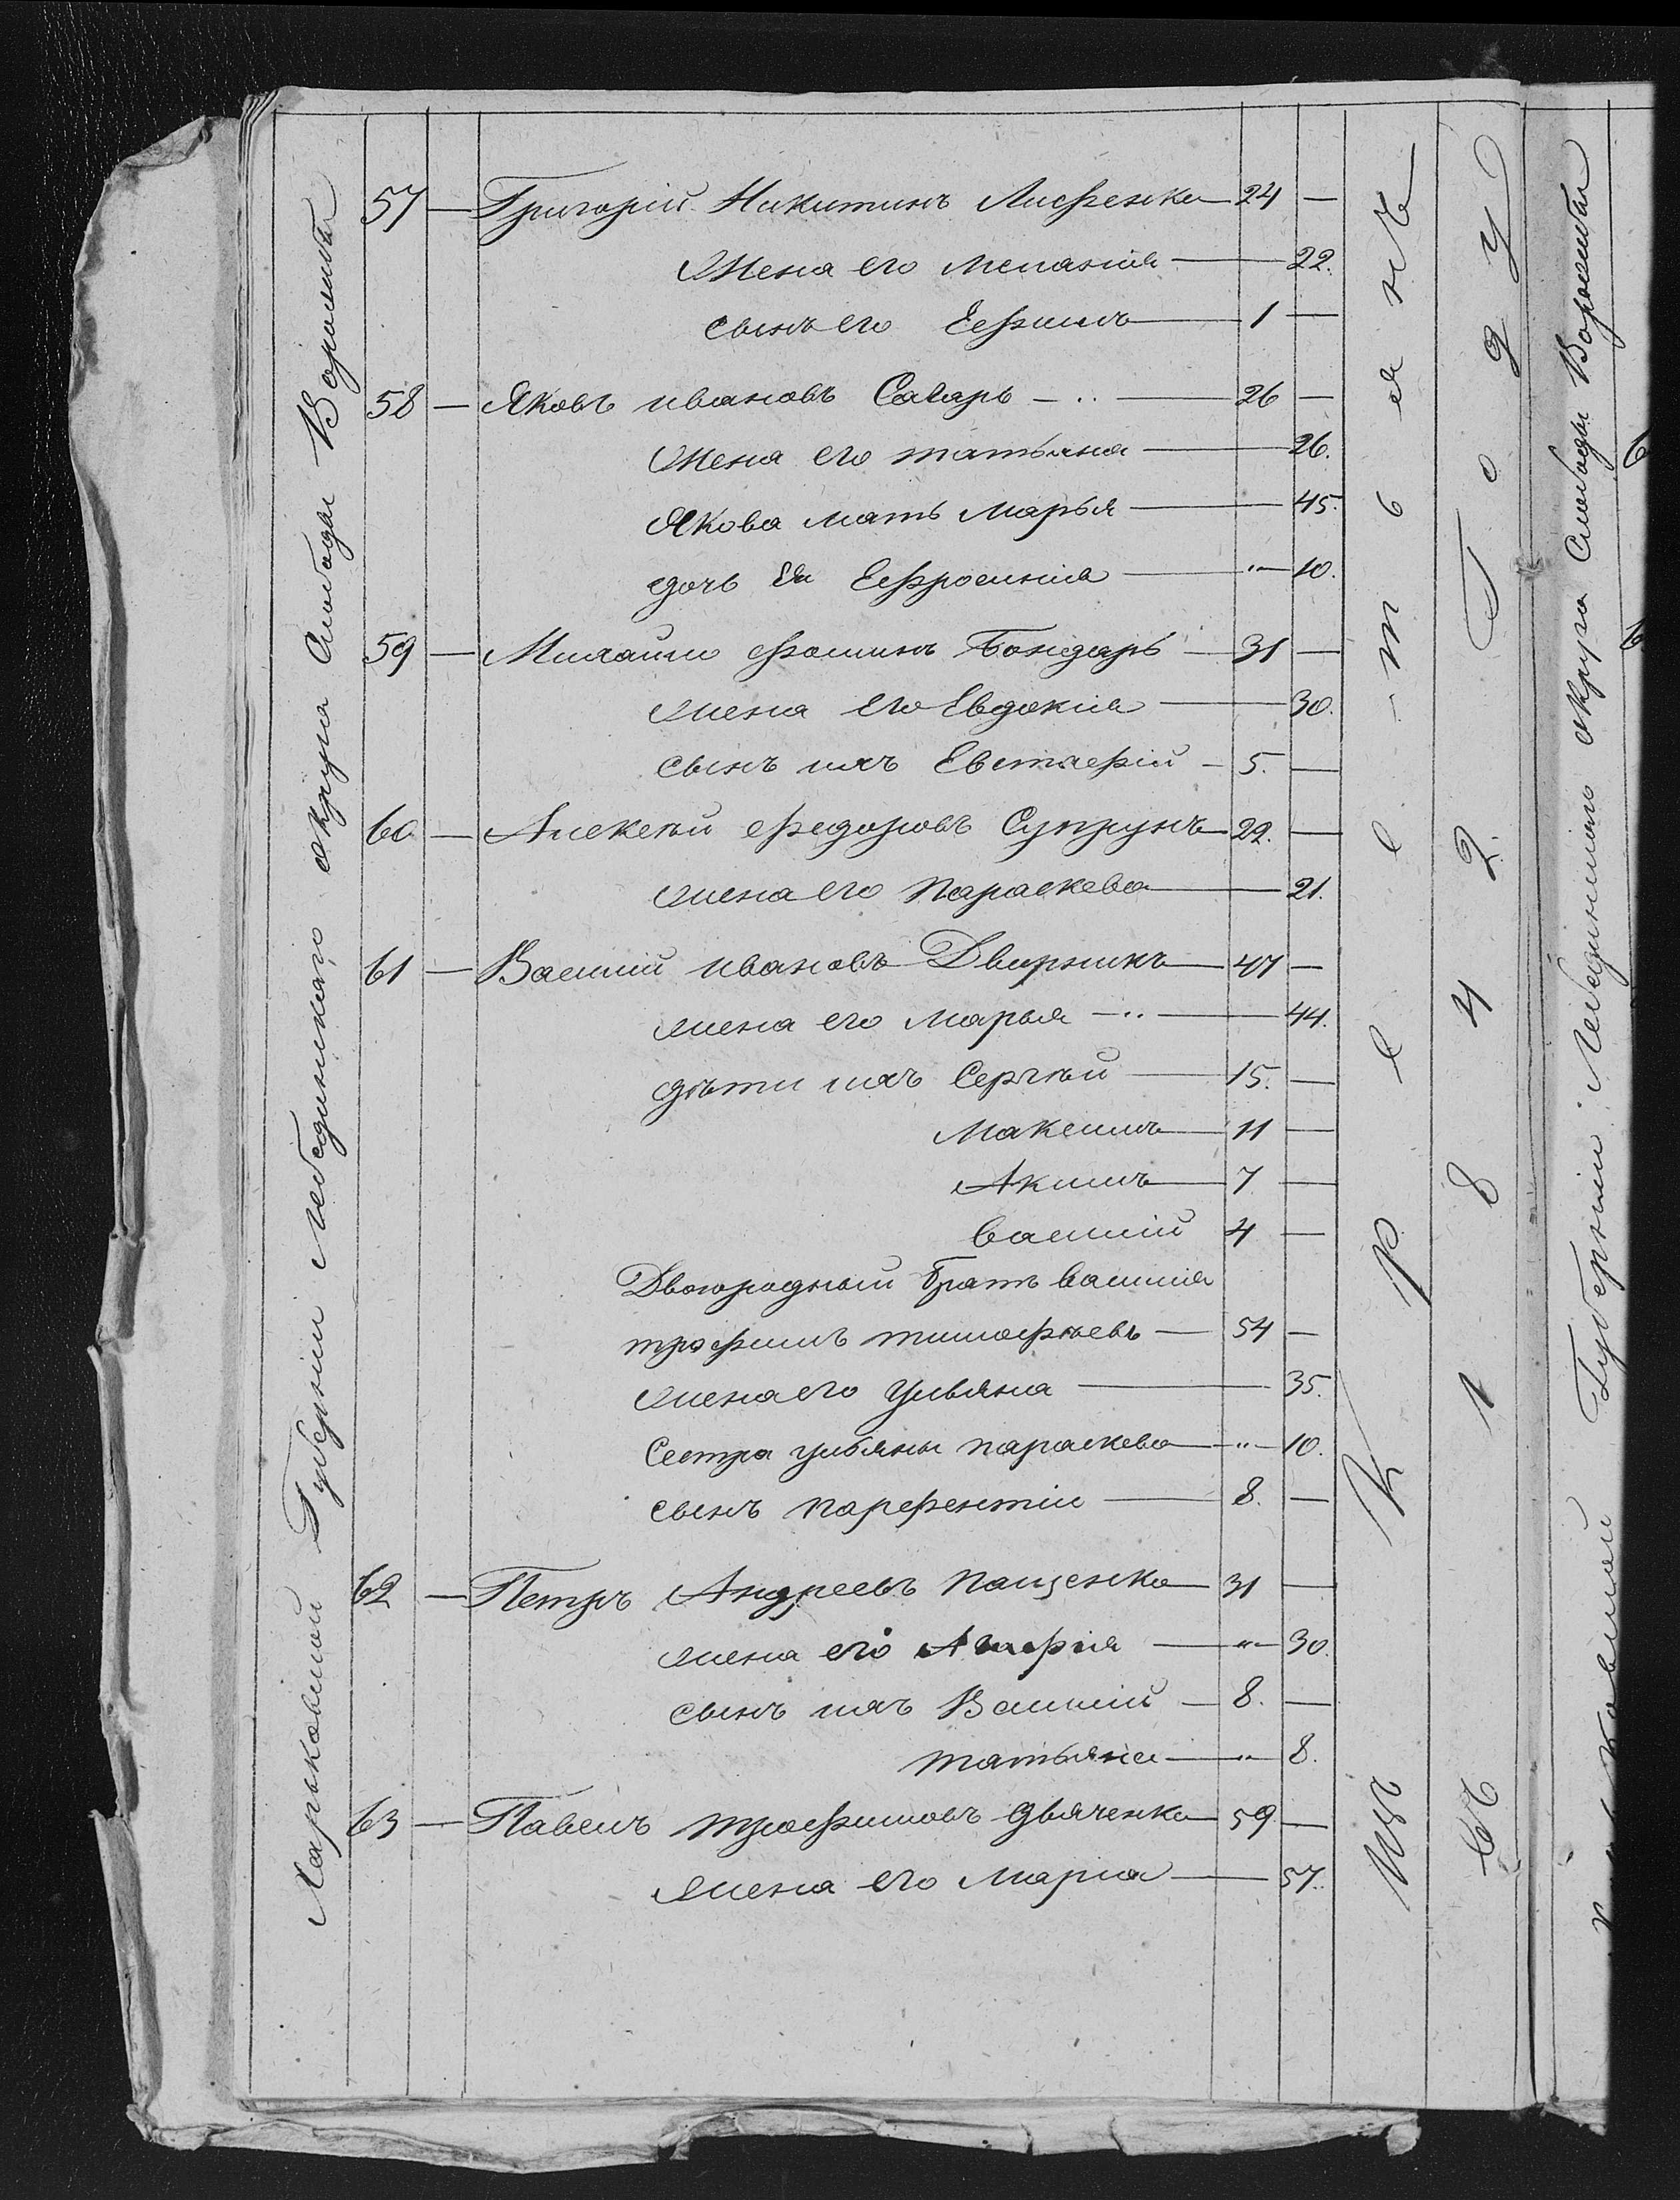 Харьковской Губерніи Лебединскаго округа Слободы Ворожбы
57 — Григорій Никитинъ Лисфенко — 24 —
Жена его меланія — 22.
сынъ его Ефимъ — 1 —
58 — Яковъ ивановъ Саварь — 26 —
Жена его татьяна — 26.
Якова мать Марья — 45.
дочь Ея Ефросинія — " — 10.
59 — Михайло фоминъ Бондарь — 31 —
жена его Евдокія — 30.
сынъ ихъ Евстафій — 5. —
60 — Алексѣй федоровъ Супрунъ — 22. —
жена его параскева — 21.
61 — Василій ивановъ Дворникъ — 47 —
жена его Марья — 44.
дѣти ихъ Сергѣй — 15. —
Максимъ — 11 —
Акимъ — 7 —
василій 4 —
Двоюродный братъ василія
трофимъ тимофѣевъ — 54 —
жена его ульяна — 35.
Сестра ульяны параскева — " — 10.
сынъ парфентіи — 8. —
62 — Петръ Андреевъ пащенко — 31 —
жена его — " — 30.
сынъ ихъ Василій — 8. —
татьяна — " — 8.
63 — Павелъ трофимовъ дьяченко — 59 —
жена его марія — 57.
Изъ Крестьянъ
Въ 1842 Году
Губерніи Лебединскаго округа Слободы Ворожбы